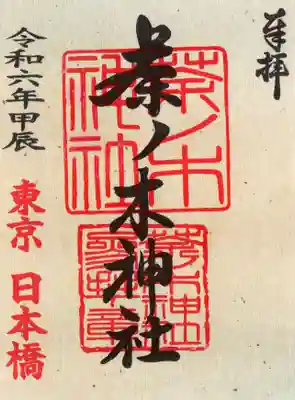 奉拝
茶ノ木神社
令和六年甲辰
東京 日本橋
茶ノ木
神社